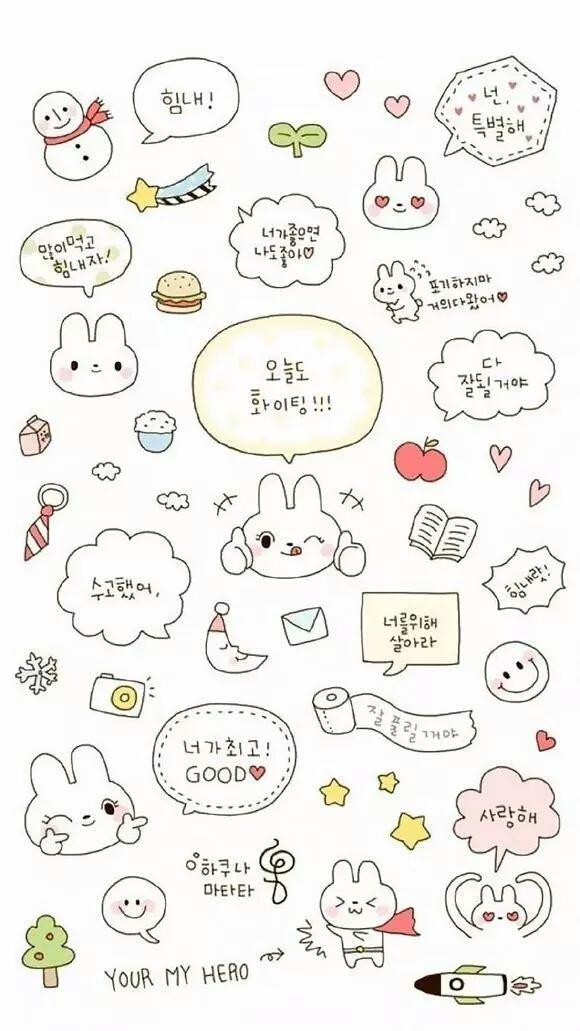 힘내!
넌,
특별해
너가좋으면
나도좋아♡
많이먹고
힘내자!
포기하지마
거의다왔어♥
오늘도
화이팅!!!
다
잘될거야
수고했어,
힘내랏!
너를위해
살아라
잘 풀릴거야
너가최고!
GOOD♥
사랑해
하쿠나
마타타
YOUR MY HERO